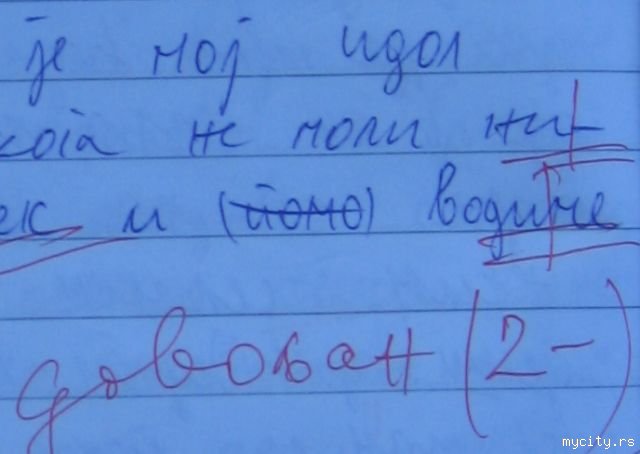 је мој идол
кога не моли ни-
ек и (помо) водиче
довољан (2-)
mycity.rs